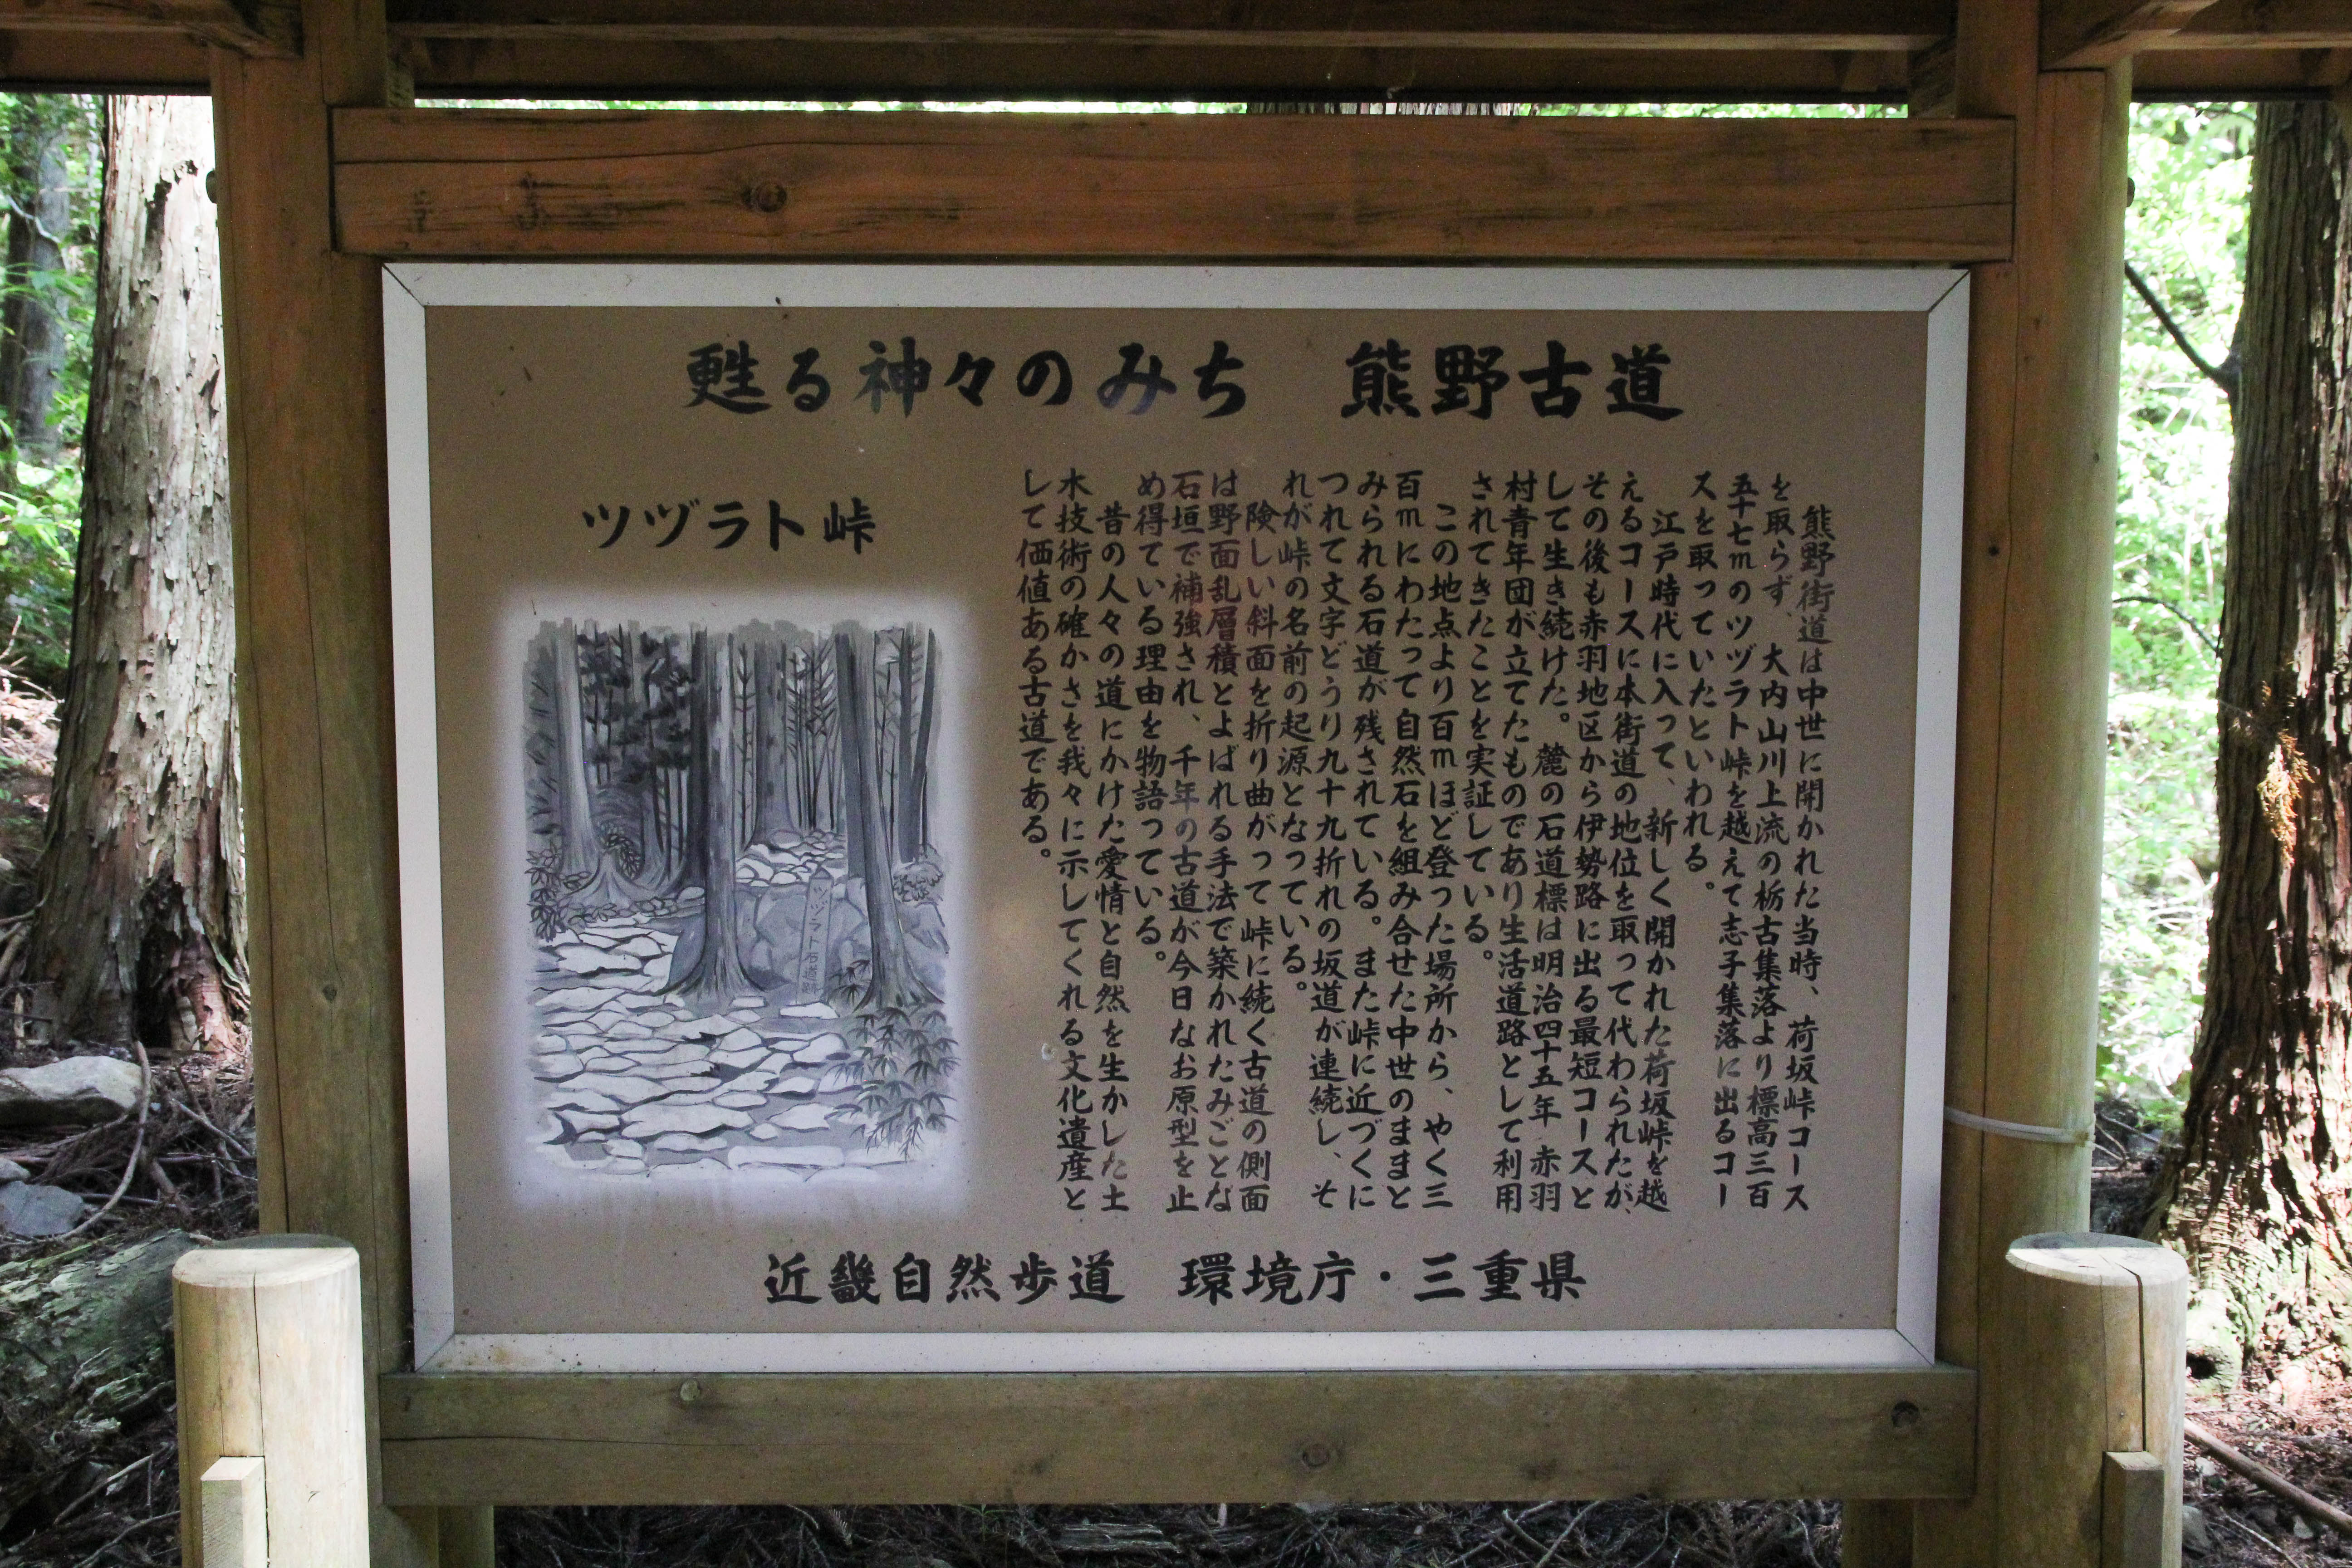 甦る神々のみち　熊野古道
ツヅラト峠
熊野街道は中世に開かれた当時、荷坂峠コース
を取らず、大内山川上流の栃古集落より標高三百
五十七mのツヅラト峠を越えて志子集落に出るコー
スを取っていたといわれる。
江戸時代に入って、新しく開かれた荷坂峠を越
えるコースに本街道の地位を取って代わられたが、
その後も赤羽地区から伊勢路に出る最短コースと
して生き続けた。麓の石道標は明治四十五年　赤羽
村青年団が立てたものであり生活道路として利用
されてきたことを実証している。
この地点より百mほど登った場所から、やく三
百mにわたって自然石を組み合せた中世のままと
みられる石道が残されている。また峠に近づくに
つれて文字どうり九十九折れの坂道が連続し、そ
れが峠の名前の起源となっている。
険しい斜面を折り曲がって峠に続く古道の側面
は野面乱層積とよばれる手法で築かれたみごとな
石垣で補強され、千年の古道が今日なお原型を止
め得ている理由を物語っている。
昔の人々の道にかけた愛情と自然を生かした土
木技術の確かさを我々に示してくれる文化遺産と
して価値ある古道である。
ツヅラト石道跡
近畿自然歩道　環境庁・三重県